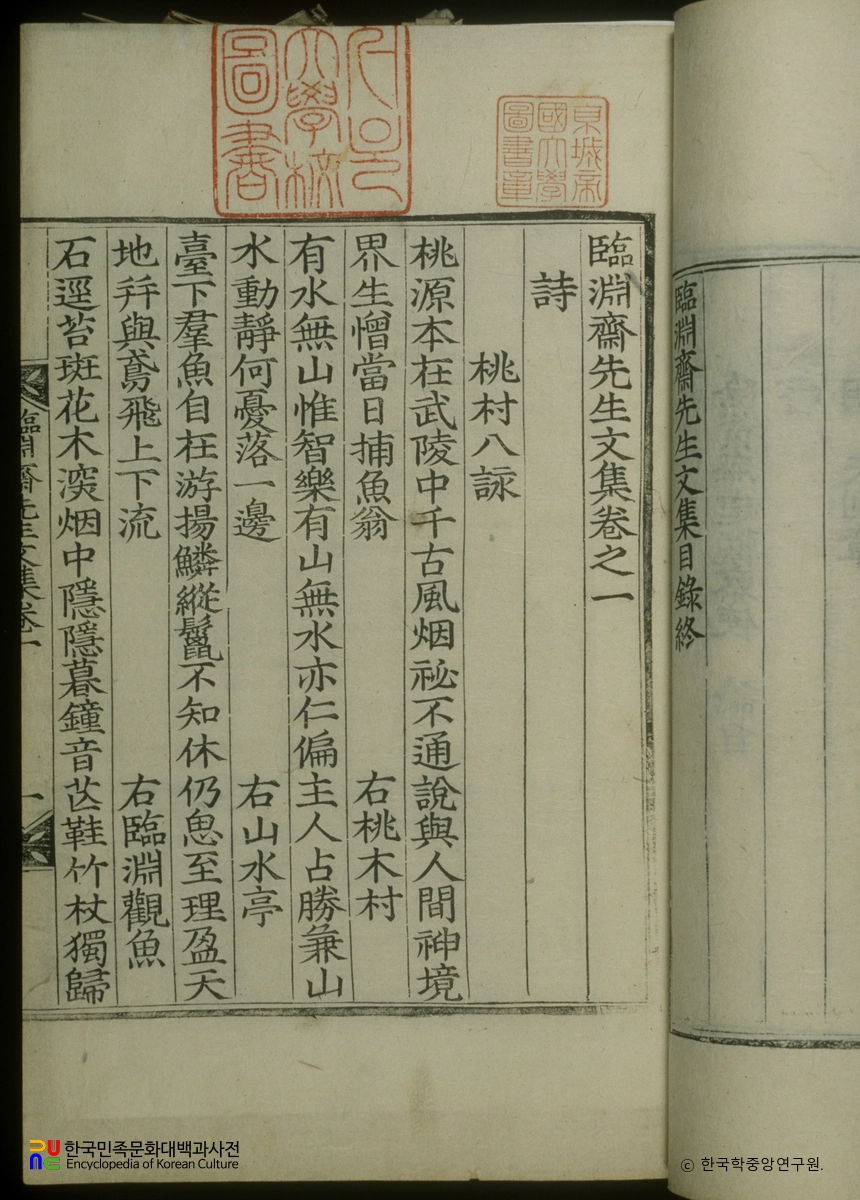 臨淵齋先生文集目錄終
臨淵齋先生文集卷之一
詩
桃村八詠
桃源本在武陵中千古風烟祕不通說與人間神境
界生憎當日捕魚翁 右桃木村
有水無山惟智樂有山無水亦仁偏主人占勝兼山
水動靜何憂落一邊 右山水亭
臺下羣魚自在游揚鱗縱鬣不知休仍思至理盈天
地幷與鳶飛上下流 右臨淵觀魚
石逕苔斑花木深烟中隱隱暮鐘音芒鞋竹杖獨歸
臨淵齋先生文集卷一
一
서울
大學校
圖書
京城帝
國大學
圖書章
한국민족문화대백과사전
Encyclopedia of Korean Culture
ⓒ 한국학중앙연구원.